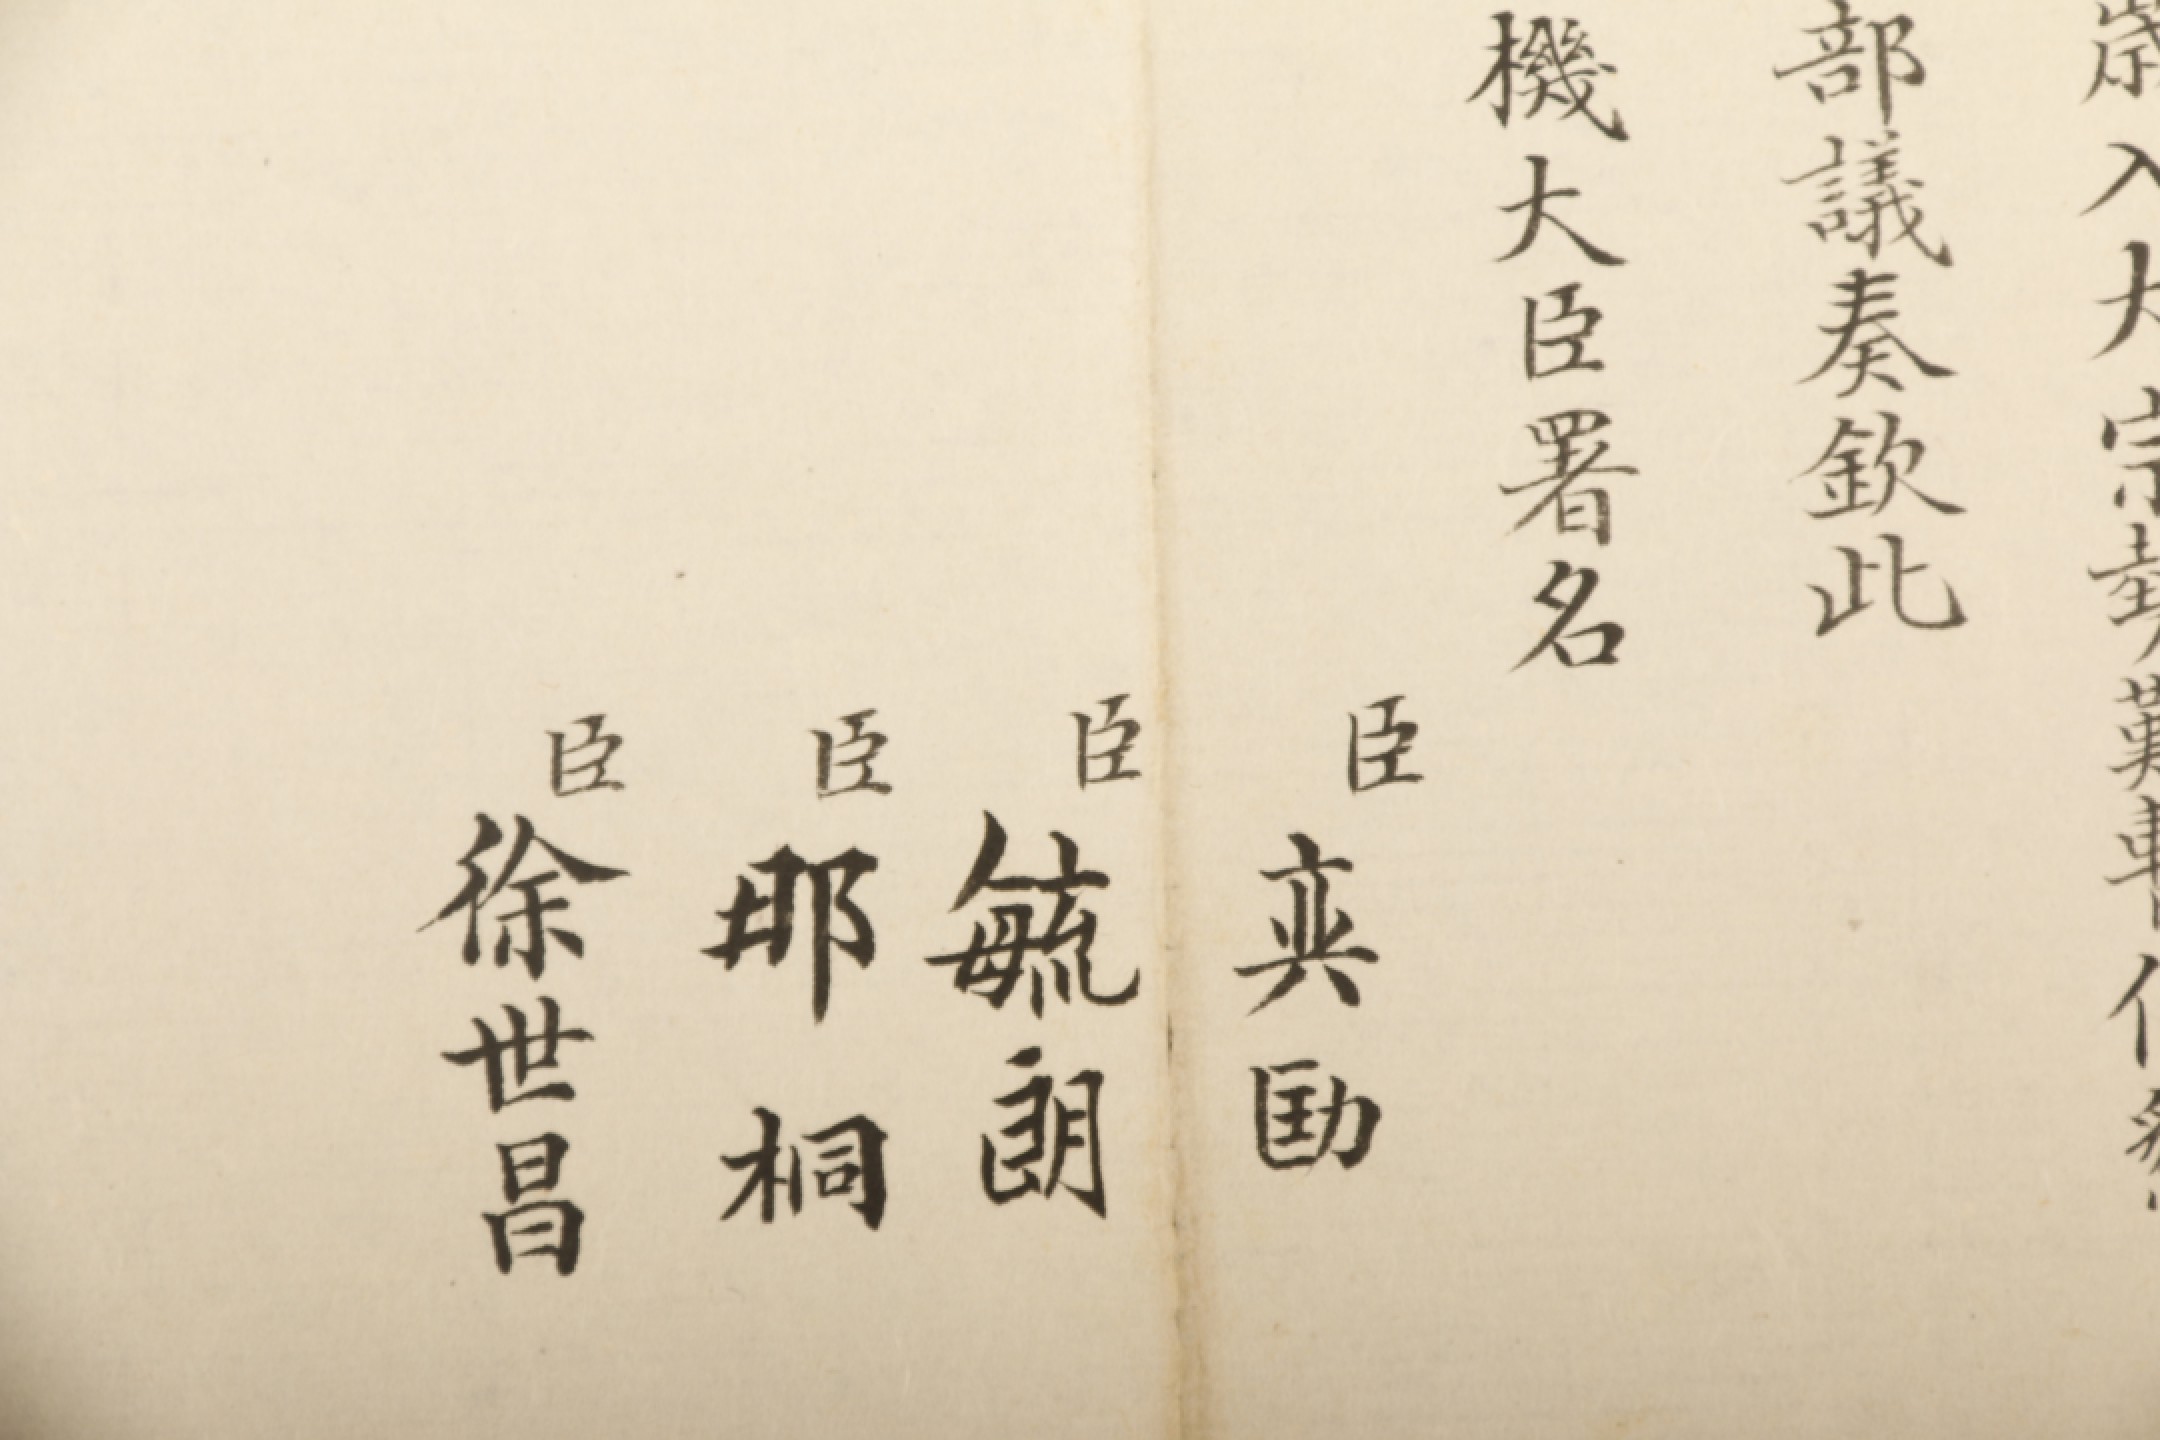 歲入大宗勢難暫停
部議奏欽此
機大臣署名
臣奕劻
臣毓朗
臣那桐
臣徐世昌